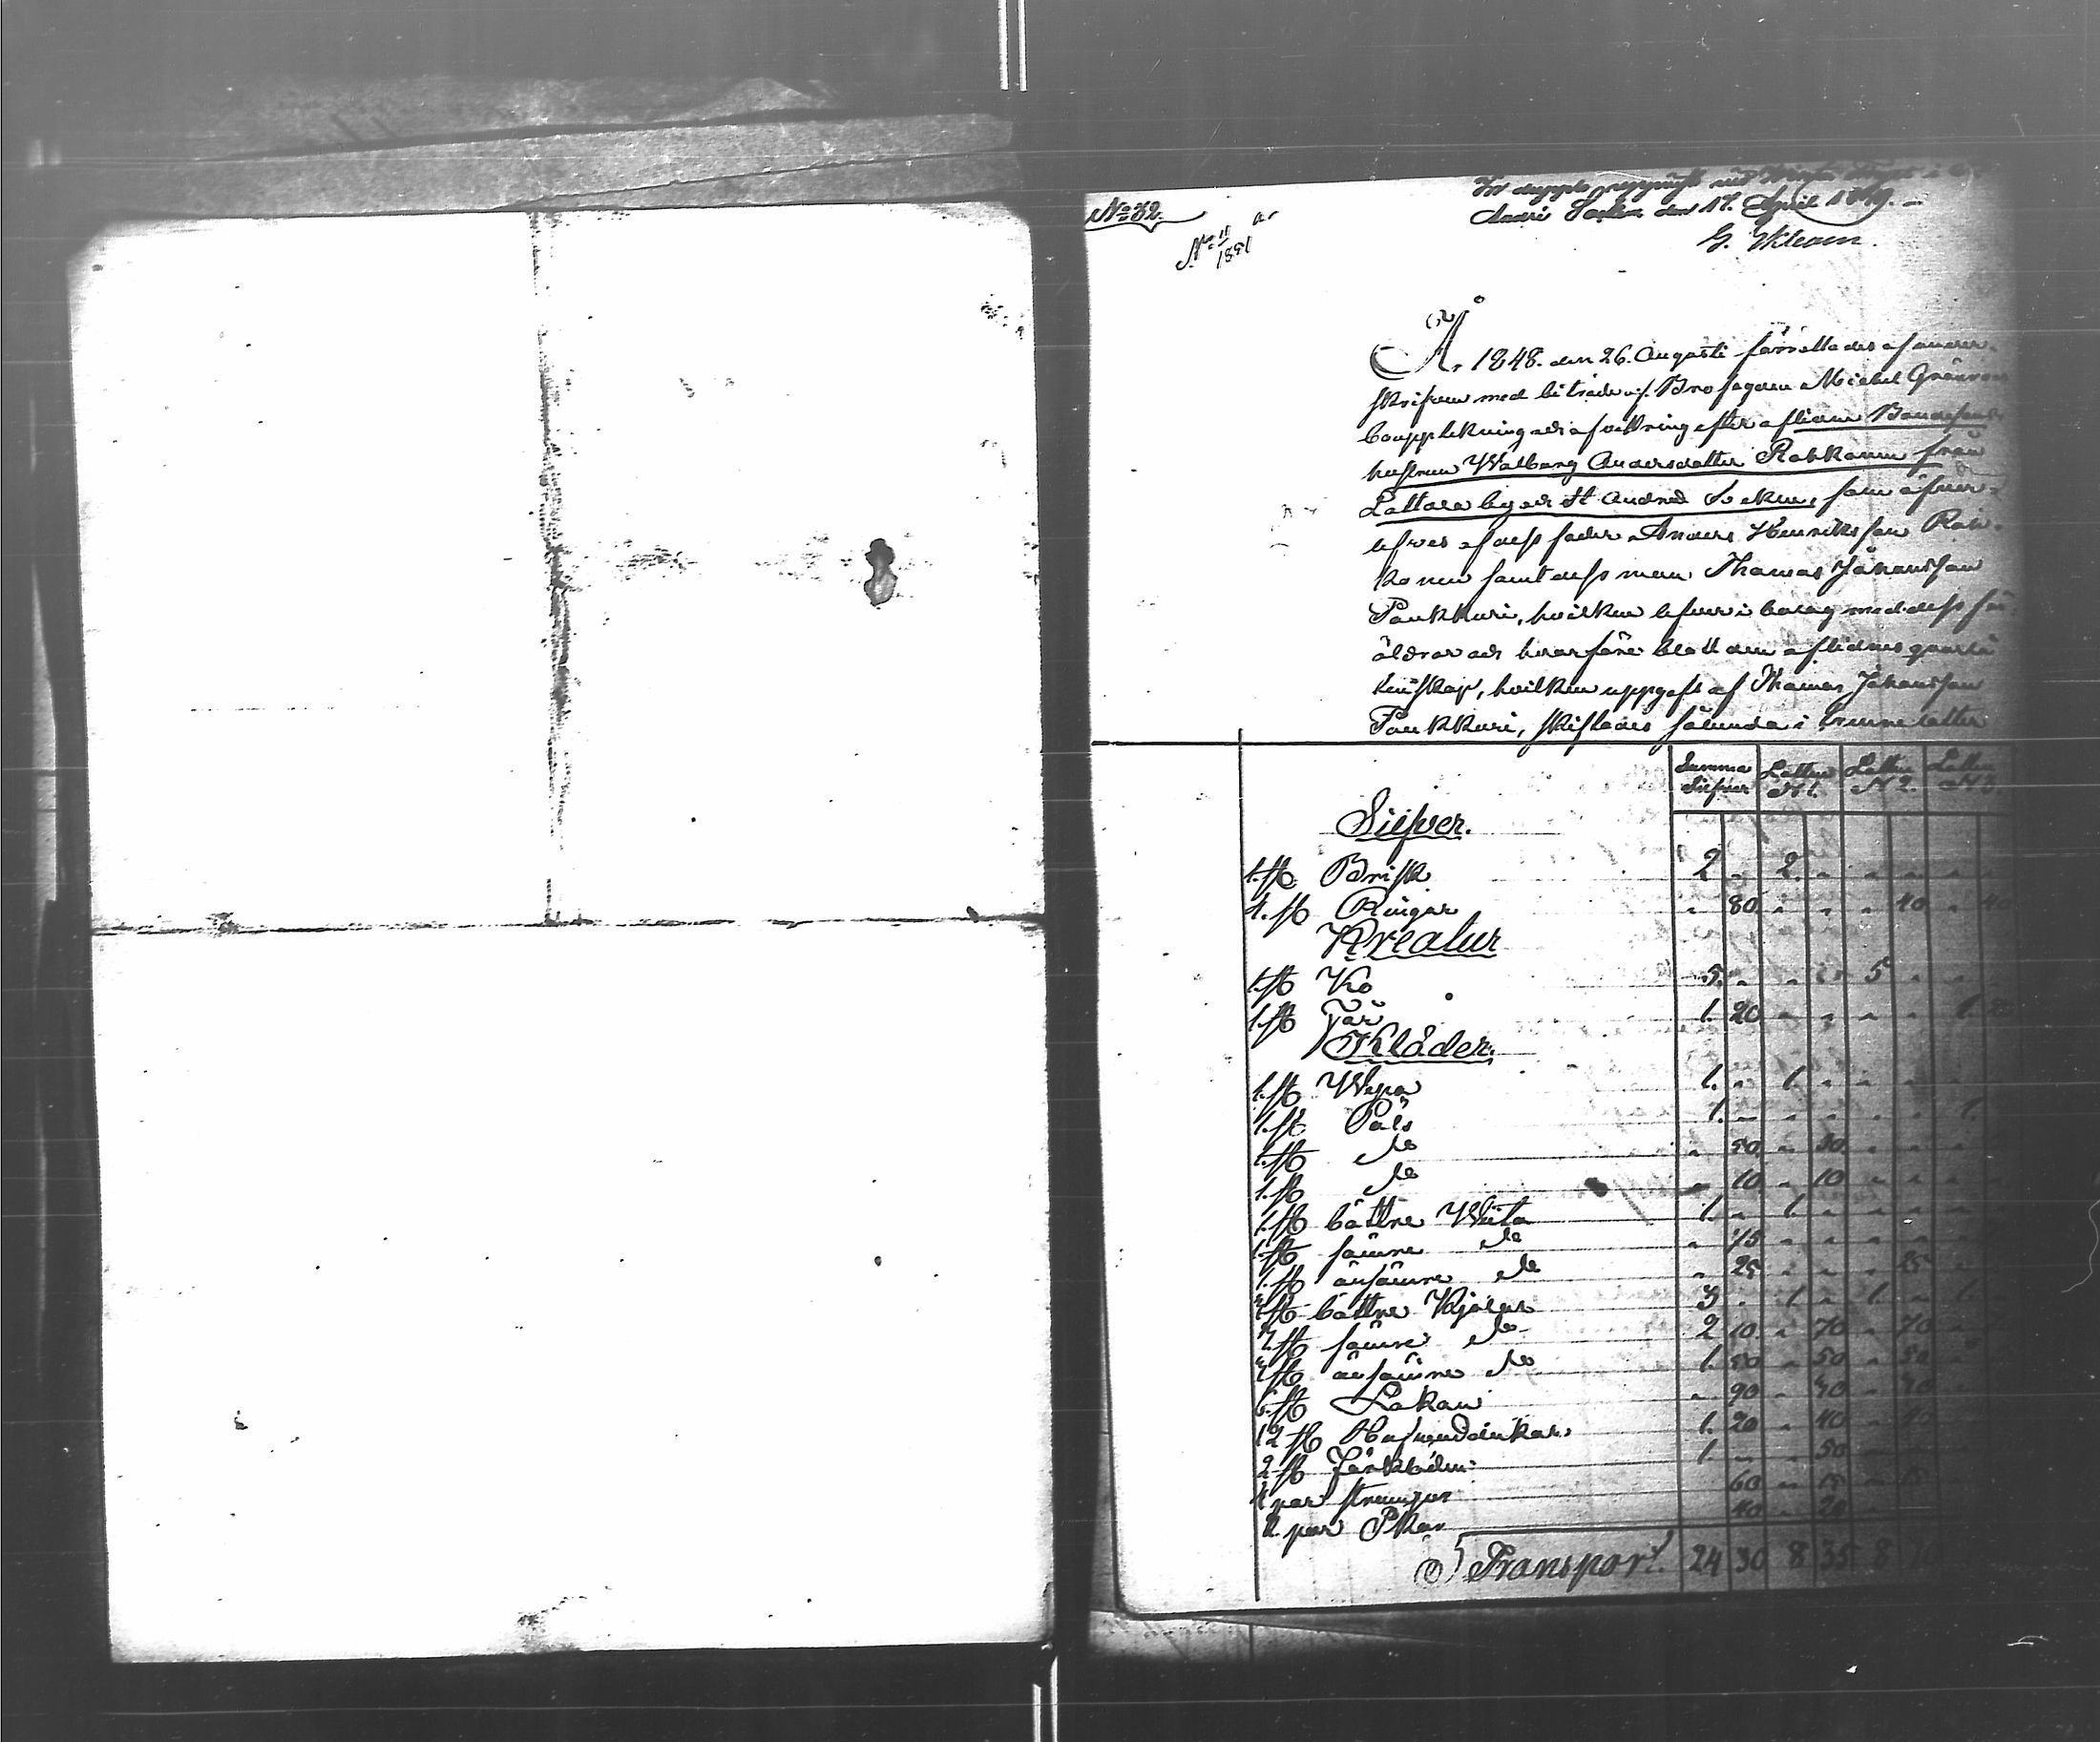 No 32.
No 11
1851
In duplo uppvist vid Vinter Tinget i
Andræ Socken den 17. April 1849.
G. Wileam.
År 1848. den 26. Augusti förrättades af under-
skrifven med biträde af Brofogden Michel
bouppteckning och afvittring efter aflidna Bondesons
hustrun Walborg Andersdotter Rokkanen från
Lattola by och St Andreæ Socken, som öfver-
lefves af dess fader Anders Henriksson Rok-
kanen samt dess man Thomas Johansson
Paukkuri, hvilken lefver i bolag med dess för-
äldrar och hvarföre blott den aflidnes qvarlå-
tenskap, hvilken uppgafs af Thomas Johansson
Paukkuri, skiftades sålunda i trenne lotter
Summa Silfver Lotten N 1. Lotten N 2. Lotten N 3.
Silfver.
1. st. Brisk 2 " 2 " " " "
4. st. Ringar " 80 " " " 40 " 40
Kreatur
1. st Ko 5 " " " 5 " "
1. st Får 1. 20 " " " " 1.
Kläder.
1. st Wepa 1. " 1. " " " "
1. st Päls 1. " " " " " 1.
1. st do " 50 " 50 " "
1. st do " 10 " 10 " "
1. st bättre Wita 1. " 1. " " "
1. st sämre do " 75 " " " "
1. st ännsämre do " 25 " " " 25
3 st bättre Kjolar 3 " 1 " 1 " 1
3 st sämre do 2 10 " 70 " 70
3 st ännsämre do 1. 50 " 50 " 50
6. st Lakan " 90 " 30 " 30
12 st Hufvuddukar 1. 20 " 40 " 40
2 st Förkläden 1. " " 50
4 par strumpor 60 " 15 " 15
2. par Skor 40 " 20 "
Transport. 24 30 8 35 8